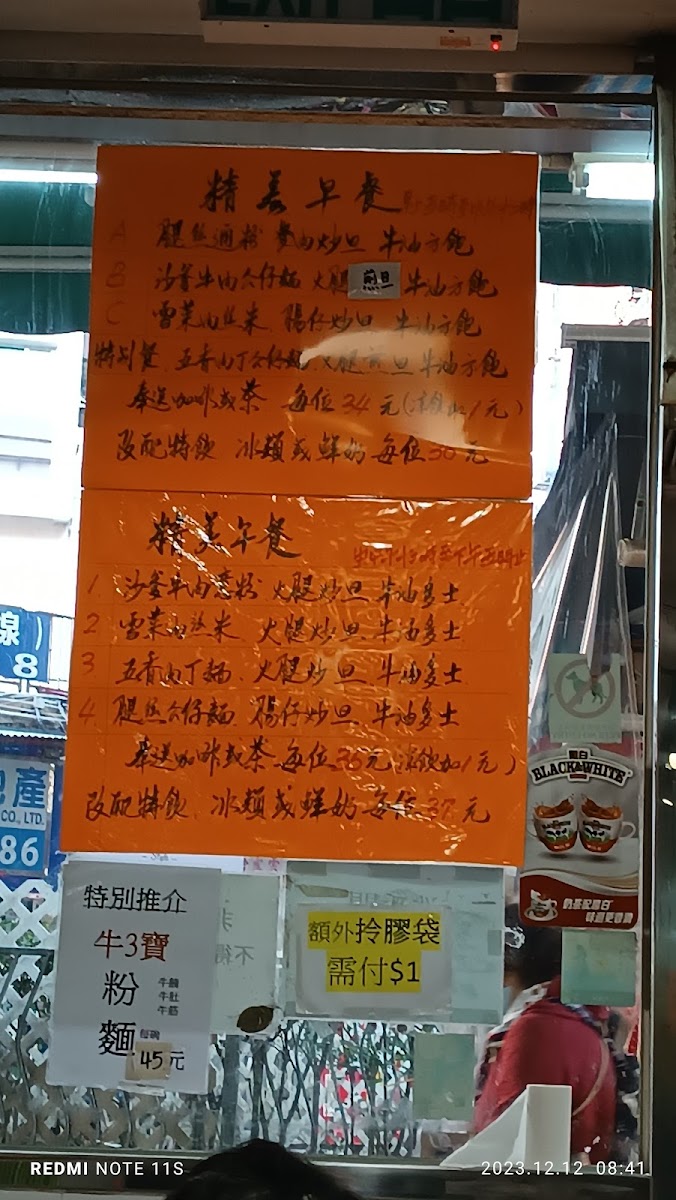 精美早餐
A 腿絲通粉 腸肉炒旦 牛油方飽
B 沙爹牛肉公仔麵 火腿煎旦 牛油方飽
C 雪菜肉丝米 腸仔炒旦 牛油方飽
特别餐 五香肉丁公仔麵 火腿煎旦 牛油方飽
奉送咖啡或茶 每位34元(凍飲加1元)
改配特飲 冰類或鮮奶 每位36元
精美午餐
1. 沙爹牛肉意粉 火腿炒旦 牛油多士
2. 雪菜肉丝米 火腿炒旦 牛油多士
3 五香肉丁麵 火腿炒旦 牛油多士
4. 腿丝公仔麵 腸仔炒旦 牛油多士
奉送咖啡或茶 每位35元(凍飲加1元)
改配特飲 冰類或鮮奶 每位37元
線)
8
地產
CO., LTD.
86
黑白
BLACK&WHITE
奶茶配黑白
味道更香濃
特別推介
牛3寶
粉
牛腩
牛肚
牛筋
麵
每碗
45元
額外拎膠袋
需付$1
REDMI NOTE 11S
2023.12.12 08:41